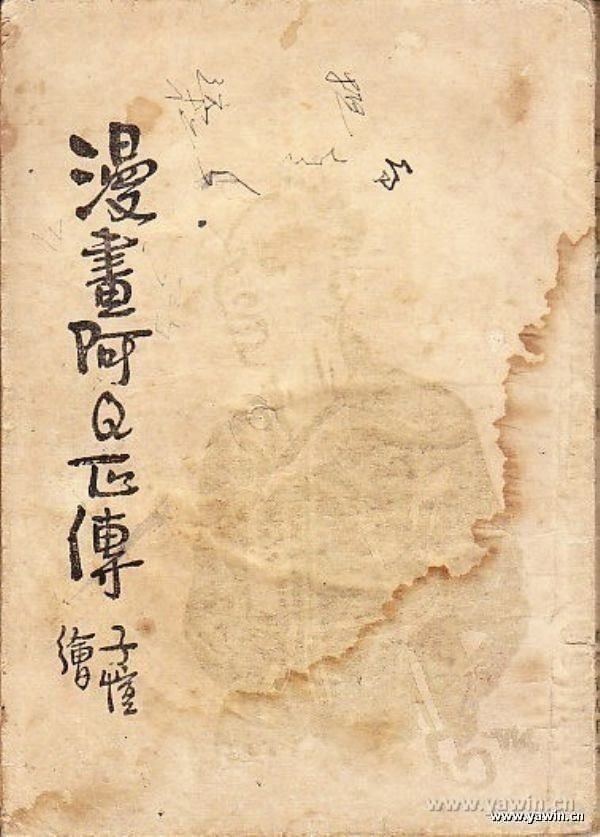 漫畫阿Q正傳
子愷
繪
www.yawin.cn
www.yawin.cn